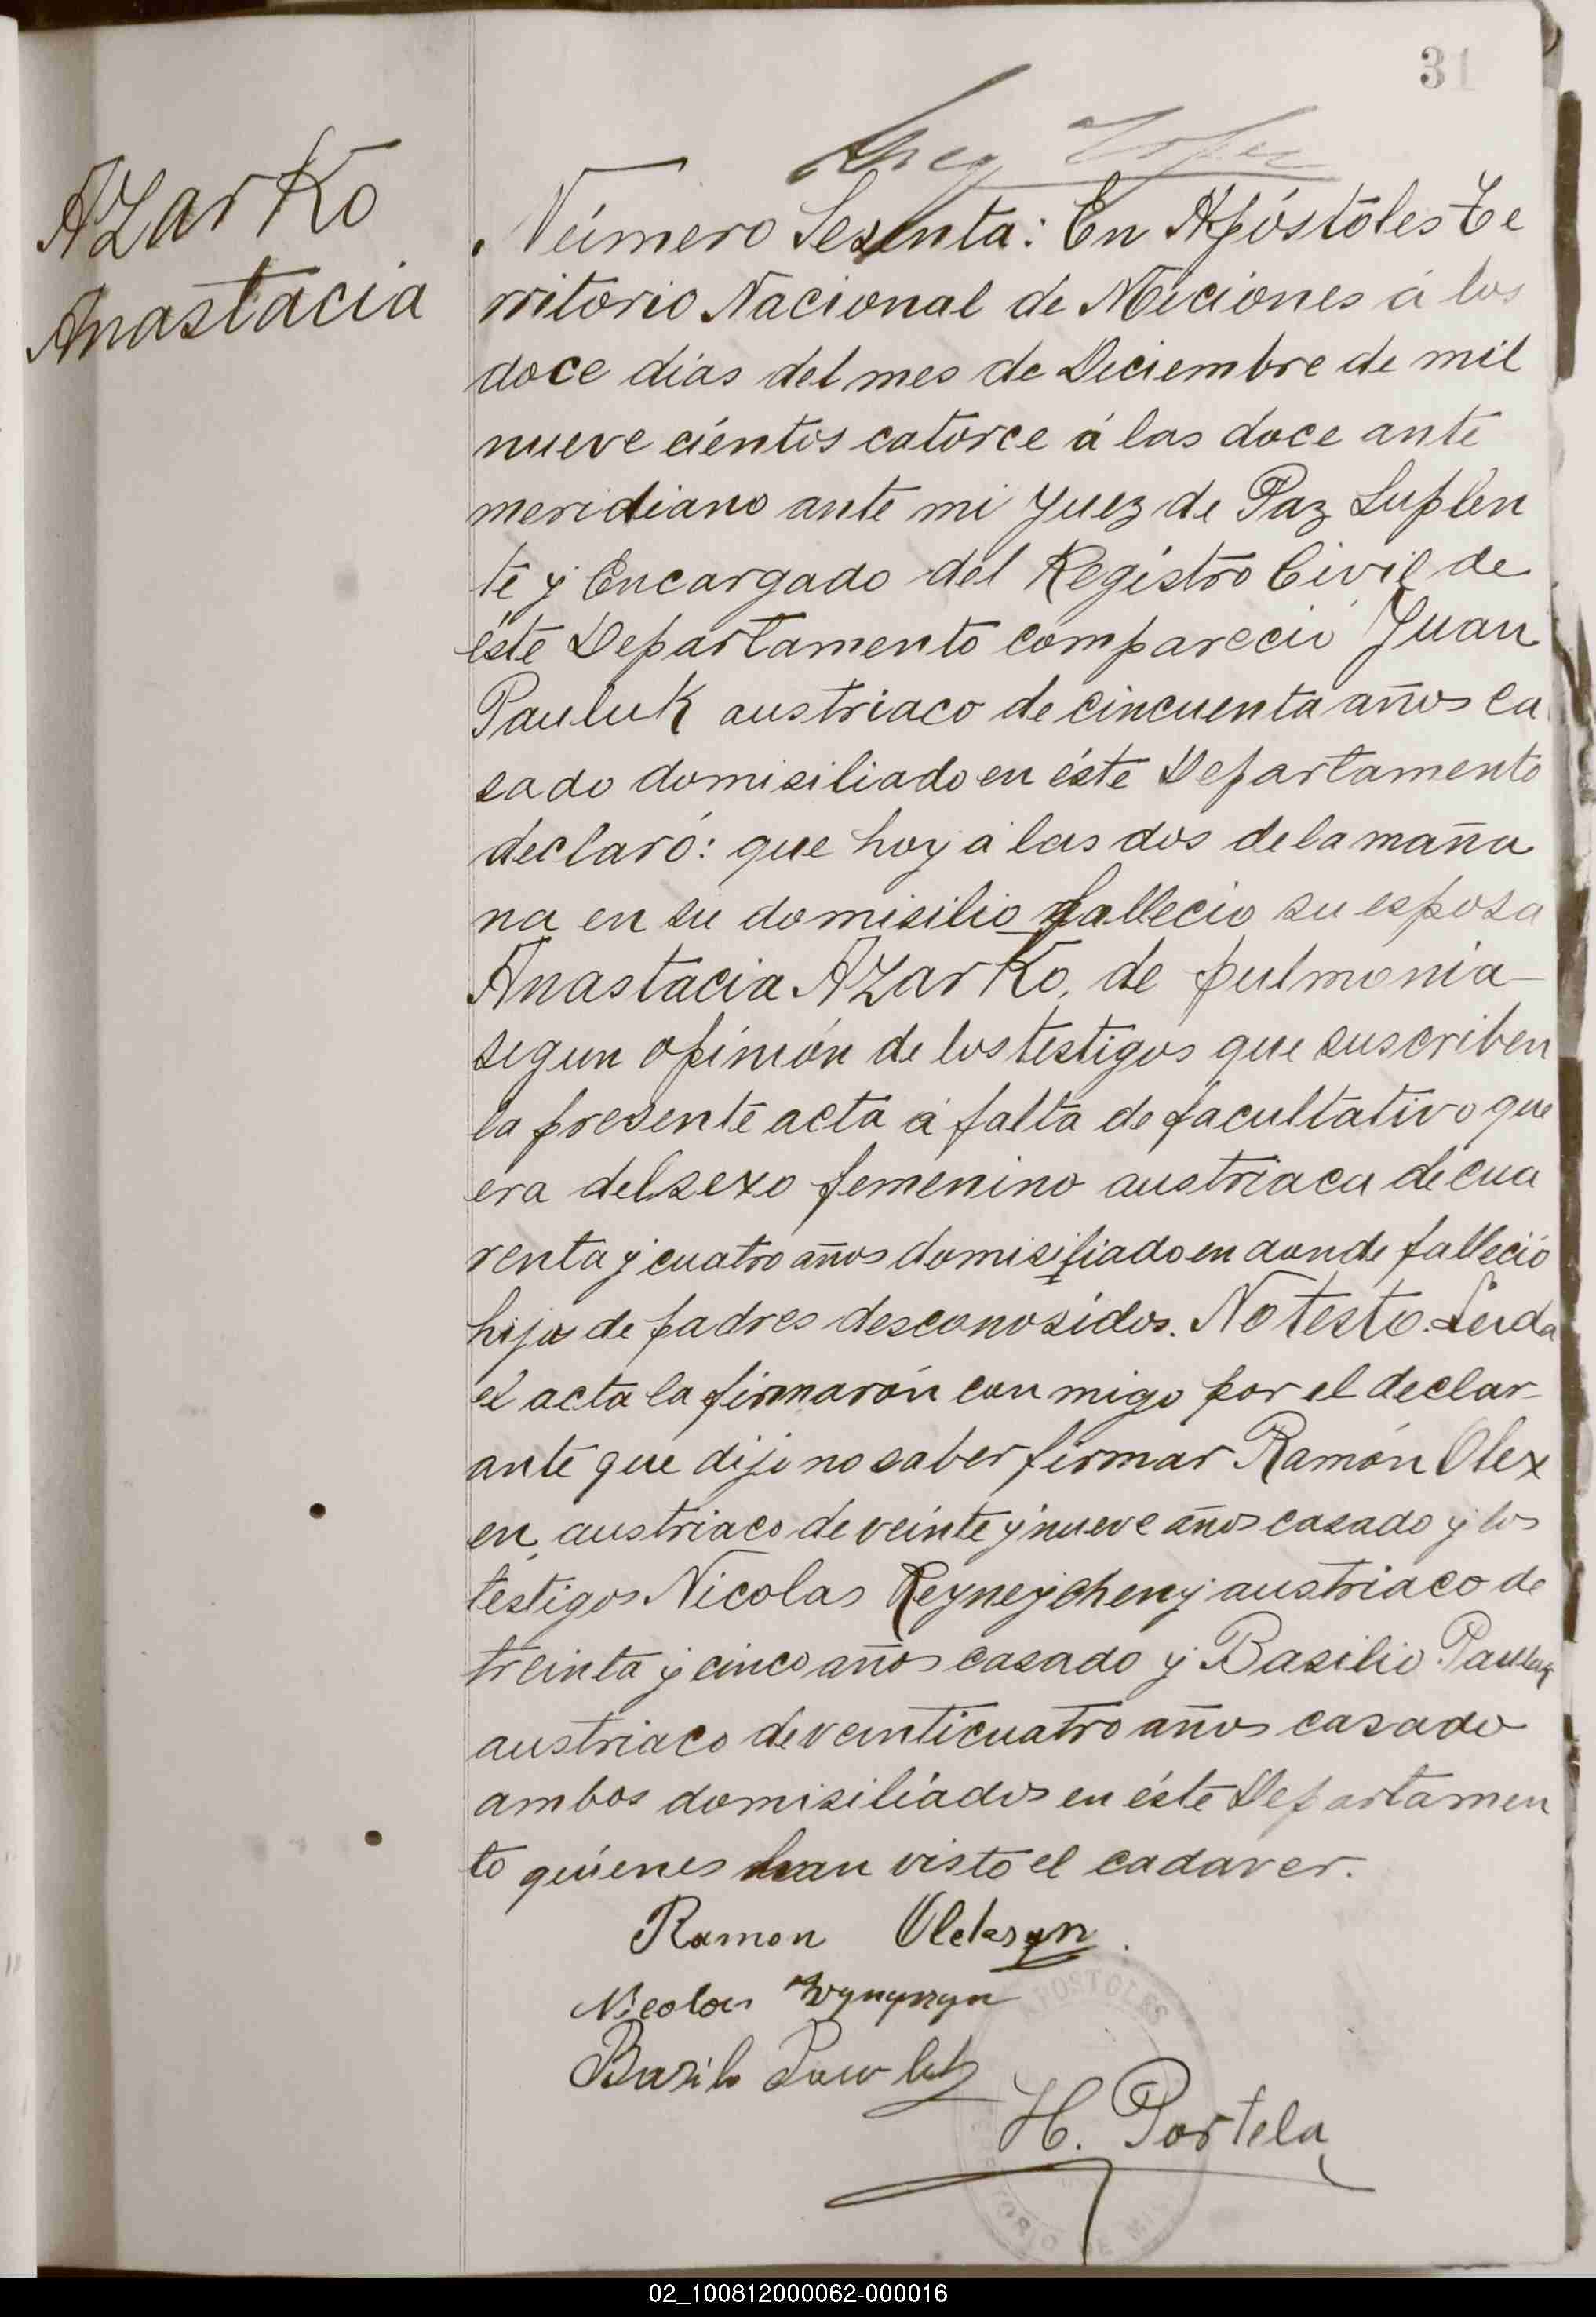 31
AZarKo
Anastacia
Número Sesenta: En Apóstoles Te
rritorio Nacional de Miciones á los
doce dias del mes de Diciembre de mil
nueve cientos catorce á las doce ante
meridiano ante mi Juez de Paz Suplen
te y Encargado del Registro Civil de
éste Departamento compareció Juan
Pauluk austriaco de cincuenta años ca
sado domisiliado en éste Departamento
declaró: que hoy á las dos de la maña
na en su domisilio fallecio su esposa
Anastacia AZarKo, de pulmonia
segun opinión de los testigos que suscriben
la presente acta á falta de facultativo que
era del sexo femenino austriaca de cua
renta y cuatro años domisiliado en donde falleció
hija de padres desconosidos. No testo. Leida
el acta la firmarón con migo por el declar
ante que dijo no saber firmar Ramón Olex
en, austriaco de veinte y nueve años casado y los
testigos Nicolas Reyneycheny austriaco de
treinta y cinco años casado y Basilio
austriaco de veinticuatro años casado
ambos domisiliados en éste Departamen
to quienes han visto el cadaver.
Ramon Oleksyn
Nicolas
Basilo
H. Portela
APOSTOLES
TORIO DE MI
02_100812000062-000016